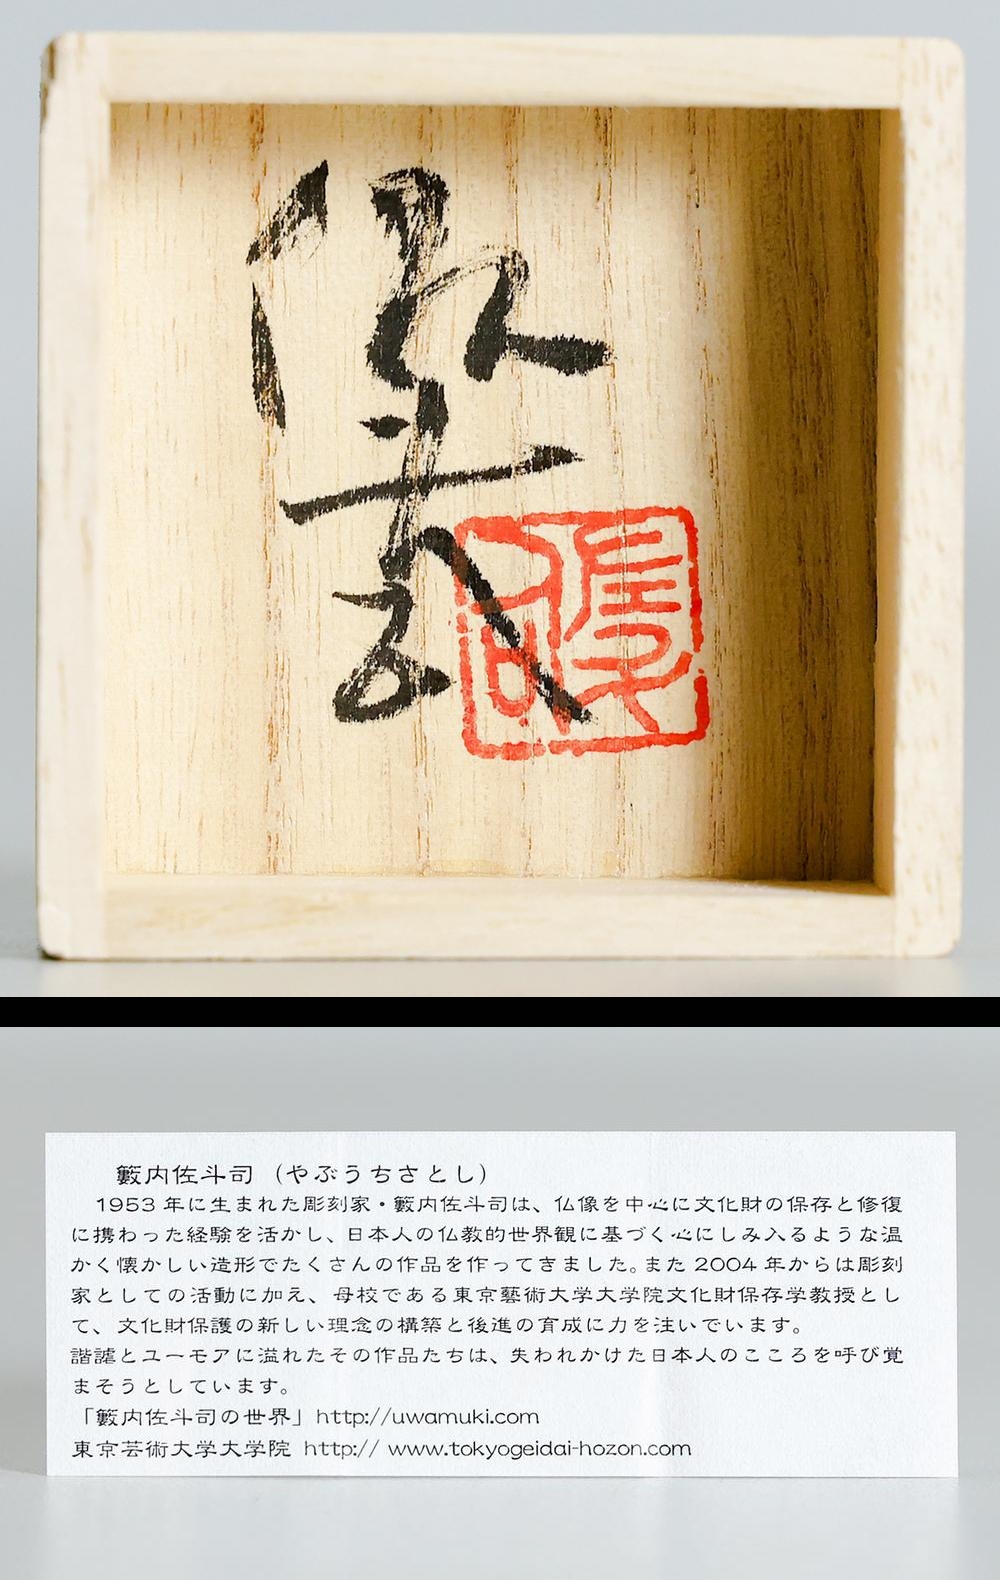 籔内佐斗司（やぶうちさとし）
1953 年に生まれた彫刻家・籔内佐斗司は、仏像を中心に文化財の保存と修復
に携わった経験を活かし、日本人の仏教的世界観に基づく心にしみ入るような温
かく懐かしい造形でたくさんの作品を作ってきました。また 2004 年からは彫刻
家としての活動に加え、母校である東京藝術大学大学院文化財保存学教授とし
て、文化財保護の新しい理念の構築と後進の育成に力を注いでいます。
諧謔とユーモアに溢れたその作品たちは、失われかけた日本人のこころを呼び覚
まそうとしています。
「籔内佐斗司の世界」http://uwamuki.com
東京芸術大学大学院 http:// www.tokyogeidai-hozon.com